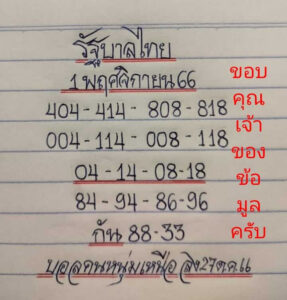 รัฐบาลไทย
1 พฤศจิกายน 66
404 - 414 - 808 - 818
004 - 114 - 008 - 118
04 - 14 - 08 - 18
84 - 94 - 86 - 96
กัน 88 - 33
บอลคนหนุ่มเหนือ ลง 27 ต.ค. 66
ขอบ
คุณ
เจ้า
ของ
ข้อ
มูล
ครับ